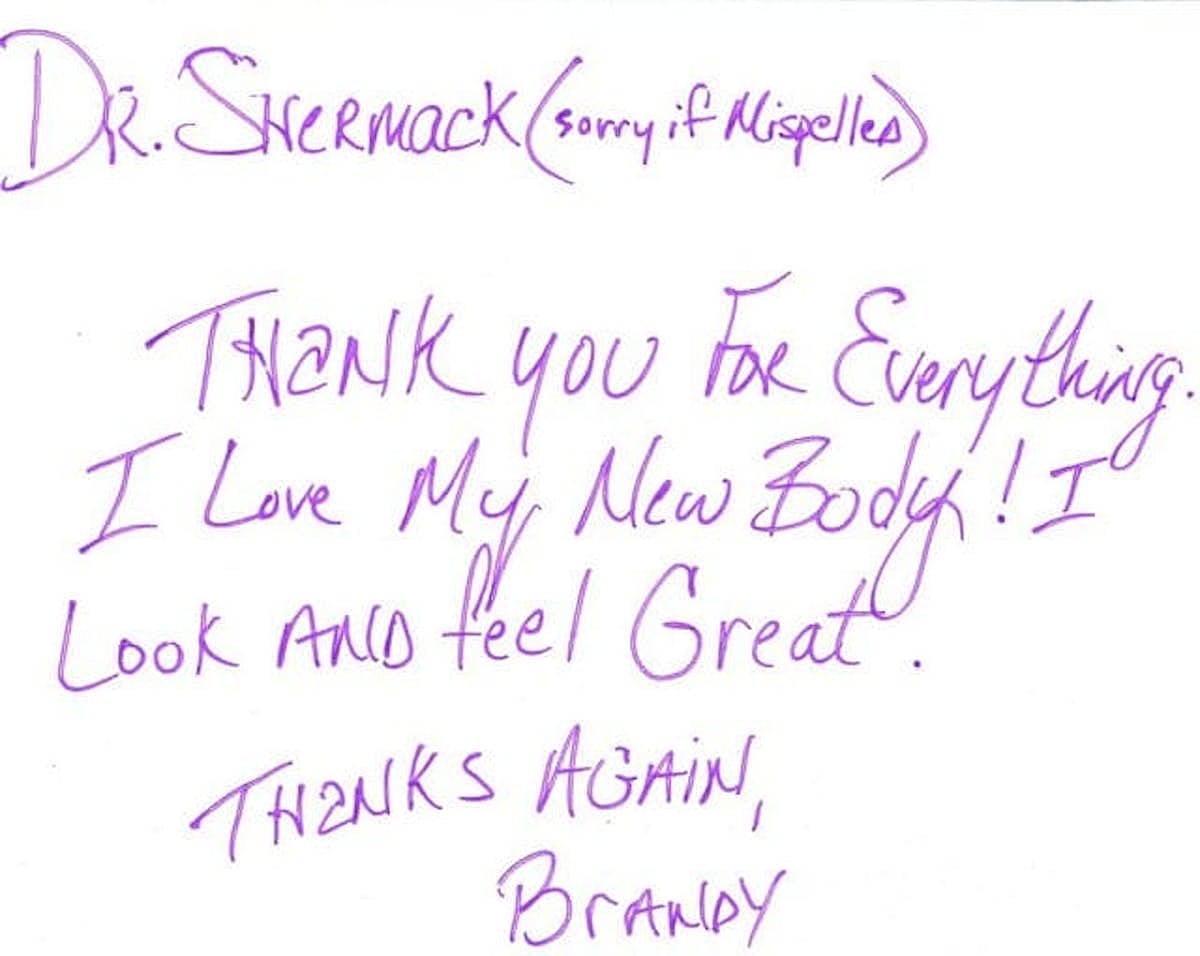 Dr. Shermack (sorry if Mispelled)
Thank you For Everything.
I Love My New Body! I
Look AND feel Great.
Thanks AGAiN,
BrANDY